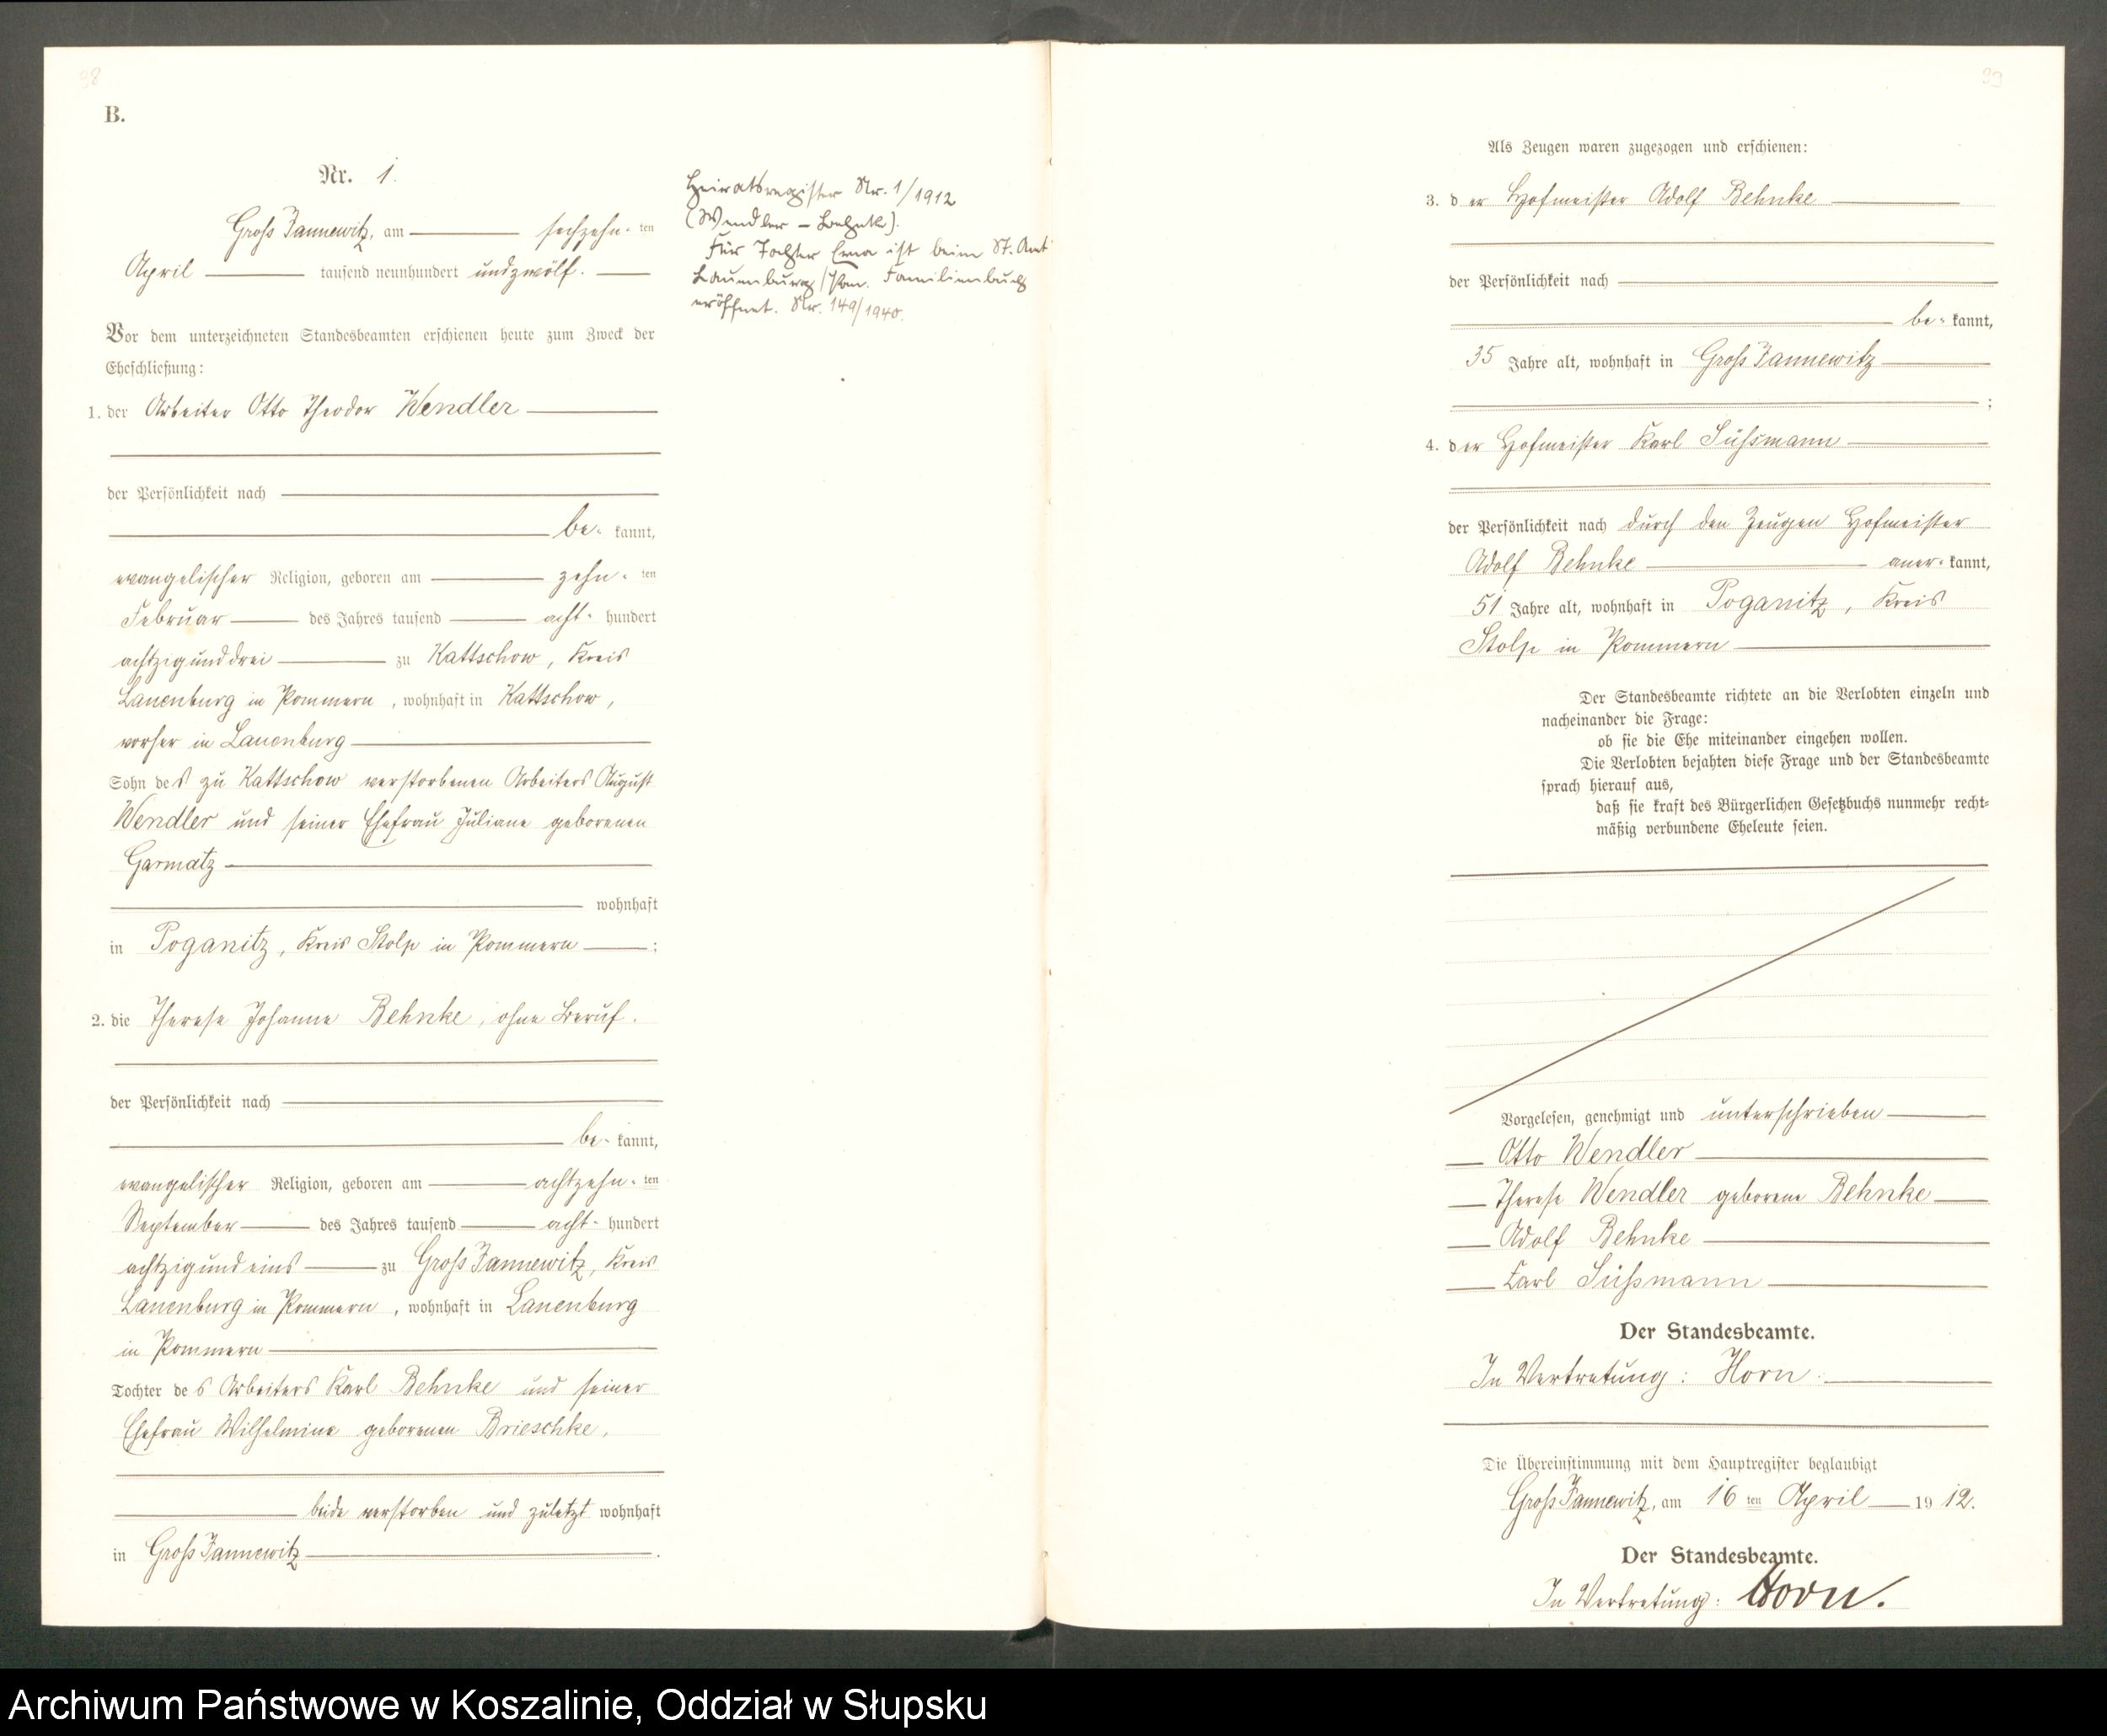 98
B.
Nr. 1.
Groß Jannewitz, am sechzehn-ten
April tausend neunhundert undzwölf.
Vor dem unterzeichneten Standesbeamten erschienen heute zum Zweck der
Eheschließung:
1. der Arbeiter Otto Theodor Wendler
der Persönlichkeit nach
be- kannt,
evangelischer Religion, geboren am zehn-ten
Februar des Jahres tausend acht- hundert
achtzigunddrei zu Kattschow, Kreis
Lauenburg in Pommern, wohnhaft in Kattschow,
vorher in Lauenburg
Sohn des zu Kattschow verstorbenen Arbeiters August
Wendler und seiner Ehefrau Juliane geborenen
Garmatz
wohnhaft
in Poganitz, Kreis Stolp in Pommern ;
2. die Therese Johanne Behnke, ohne Beruf.
der Persönlichkeit nach
be- kannt,
evangelischer Religion, geboren am achtzehn-ten
September des Jahres tausend acht- hundert
achtzigundeins zu Groß Jannewitz, Kreis
Lauenburg in Pommern, wohnhaft in Lauenburg
in Pommern
Tochter des Arbeiters Karl Behnke und seiner
Ehefrau Wilhelmine geborenen Brieschke,
beide verstorben und zuletzt wohnhaft
in Groß Jannewitz .
Heiratsregister Nr. 1/1912
(Wendler – Behnke).
Für Tochter Erna ist beim St. Amt
Lauenburg/Pom. Familienbuch
eröffnet. Nr. 149/1940.
99
Als Zeugen waren zugezogen und erschienen:
3. der Hofmeister Adolf Behnke
der Persönlichkeit nach
be- kannt,
35 Jahre alt, wohnhaft in Groß Jannewitz
;
4. der Hofmeister Karl Süßmann
der Persönlichkeit nach durch den Zeugen Hofmeister
Adolf Behnke aner- kannt,
51 Jahre alt, wohnhaft in Poganitz, Kreis
Stolp in Pommern
Der Standesbeamte richtete an die Verlobten einzeln und
nacheinander die Frage:
ob sie die Ehe miteinander eingehen wollen.
Die Verlobten bejahten diese Frage und der Standesbeamte
sprach hierauf aus,
daß sie kraft des Bürgerlichen Gesetzbuchs nunmehr recht-
mäßig verbundene Eheleute seien.
Vorgelesen, genehmigt und unterschrieben
Otto Wendler
Therese Wendler geborene Behnke
Adolf Behnke
Karl Süßmann
Der Standesbeamte.
In Vertretung: Horn.
Die Übereinstimmung mit dem Hauptregister beglaubigt
Groß Jannewitz, am 16 ten April 1912.
Der Standesbeamte.
In Vertretung: Horn.
Archiwum Państwowe w Koszalinie, Oddział w Słupsku